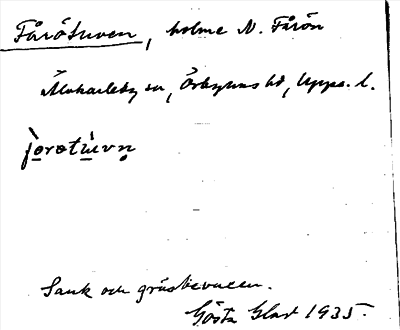 Fåröturen, holme N. Fårön
Älvkarleby sn, Örbyhus hd, Upps. l.
Sank och gräsbevuxen.
Gösta Glad 1935.